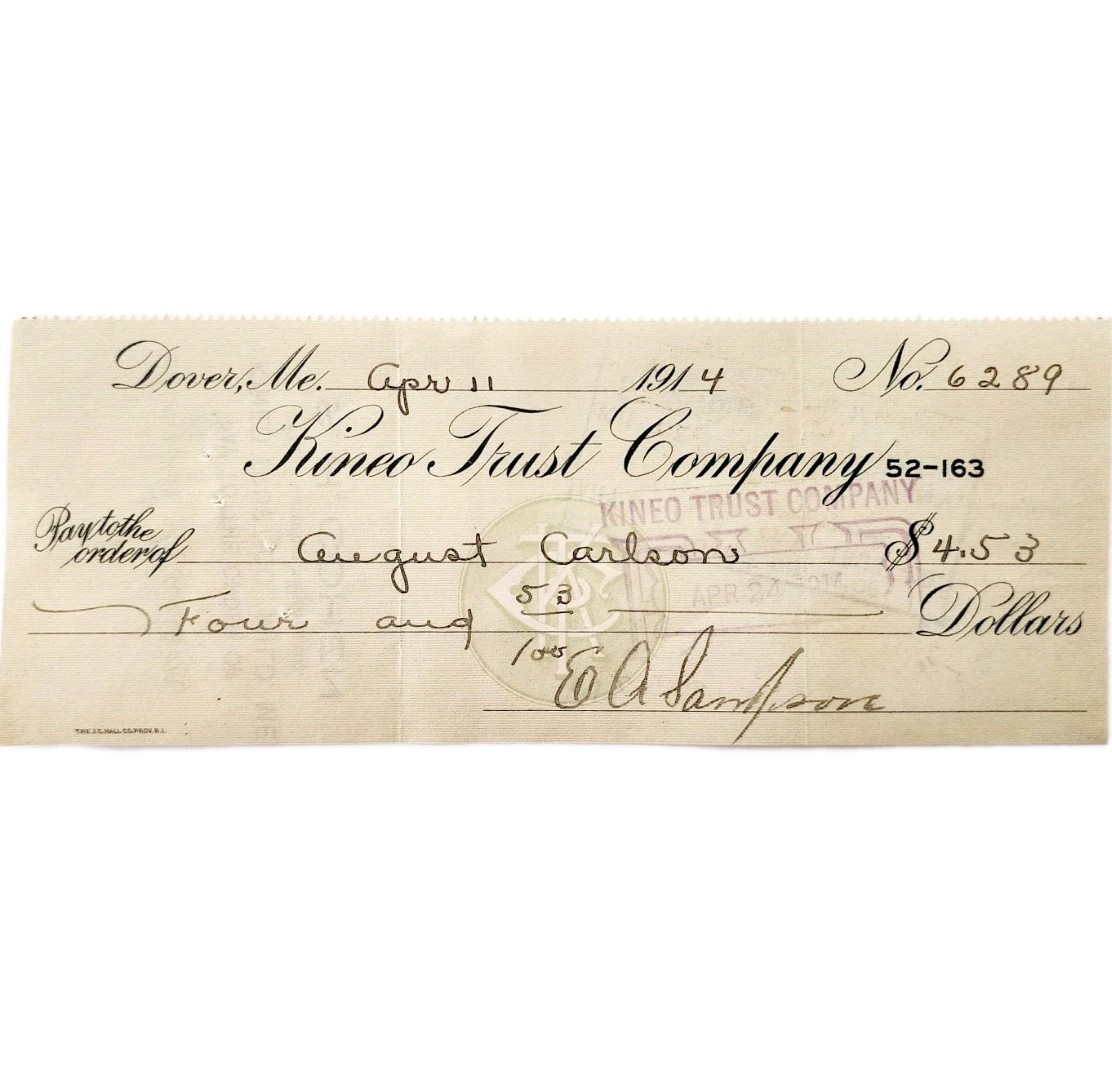 Dover, Me. Apr 11 1914 No. 6289
Kineo Trust Company 52-163
KINEO TRUST COMPANY
Pay to the order of August Carlson $4.53
PAID
APR 24 1914
Four and 53/100 Dollars
E A Sampson
THE J.C. HALL CO. PROV. R.I.